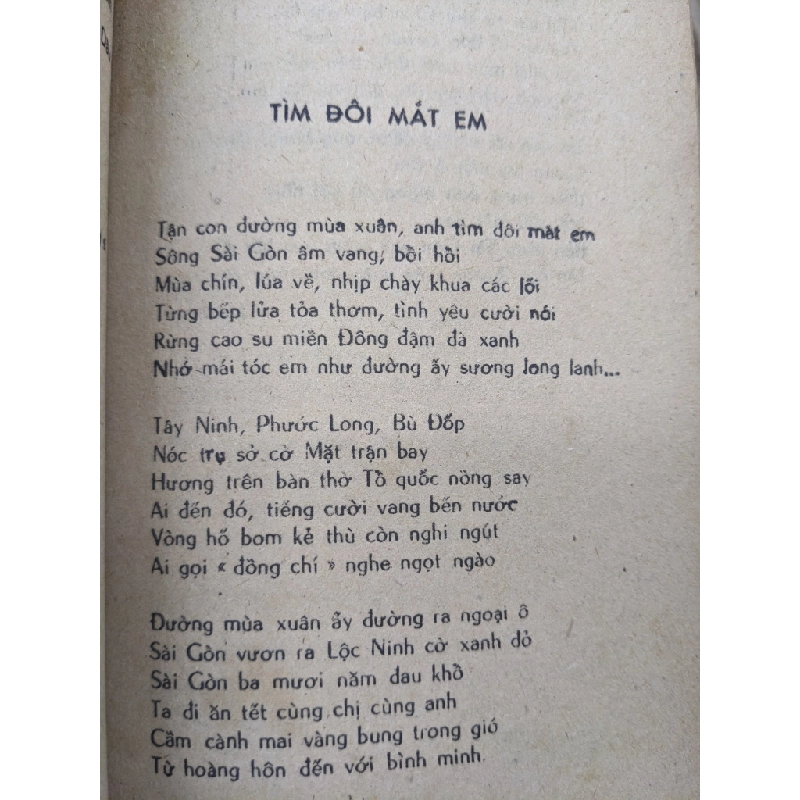 TÌM ĐÔI MẮT EM
Tận con đường mùa xuân, anh tìm đôi mắt em
Sông Sài Gòn âm vang, bồi hồi
Mùa chín, lúa về, nhịp chày khua các lối
Từng bếp lửa tỏa thơm, tình yêu cười nói
Rừng cao su miền Đông đậm đà xanh
Nhớ mái tóc em như đường ấy sương long lanh...
Tây Ninh, Phước Long, Bù Đốp
Nóc trụ sở cờ Mặt trận bay
Hương trên bàn thờ Tổ quốc nồng say
Ai đến đó, tiếng cười vang bến nước
Vòng hố bom kẻ thù còn nghi ngút
Ai gọi « đồng chí » nghe ngọt ngào
Đường mùa xuân ấy đường ra ngoại ô
Sài Gòn vươn ra Lộc Ninh cờ xanh đỏ
Sài Gòn ba mươi năm đau khổ
Ta đi ăn tết cùng chị cùng anh
Cầm cành mai vàng bung trong gió
Từ hoàng hôn đến với bình minh